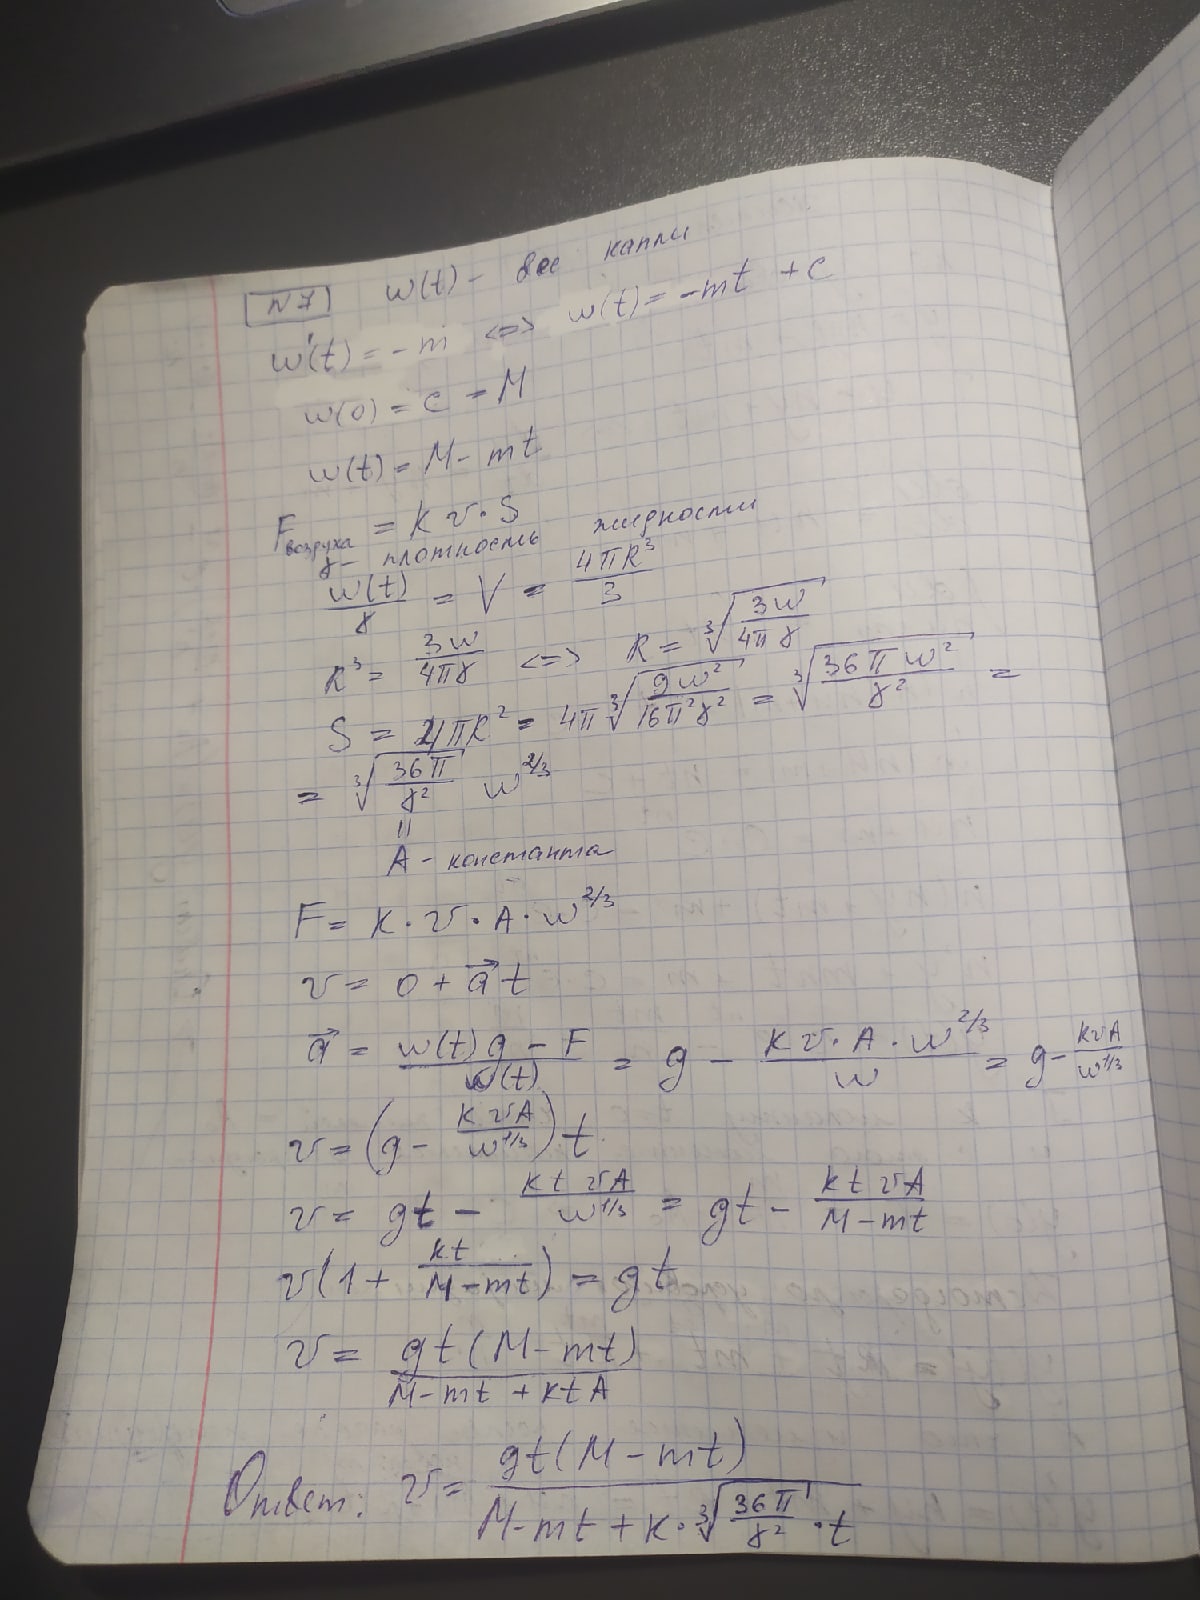 N7 w(t) - вес капли
w'(t) = - m <=> w(t) = -mt + c
w(0) = c = M
w(t) = M - mt
F воздуха = k v · S
γ - плотность жидкости
w(t)/γ = V = 4πR³/3
R³ = 3w/4πγ <=> R = ∛(3w/4πγ)
S = 4πR² = 4π ∛(9w²/16π²γ²) = ∛(36πw²/γ²) =
= ∛(36π/γ²) w^2/3
||
A - константа
F = k · v · A · w^2/3
v = 0 + a⃗ t
a⃗ = (w(t)g - F)/w(t) = g - (k v · A · w^2/3)/w = g - kvA/w^1/3
v = (g - kvA/w^1/3) t
v = gt - kt vA/w^1/3 = gt - kt vA/(M - mt)
v(1 + kt/(M - mt)) = gt
v = gt(M - mt)/(M - mt + ktA)
Ответ: v = gt(M - mt)/(M - mt + k · ∛(36π/γ²) · t)